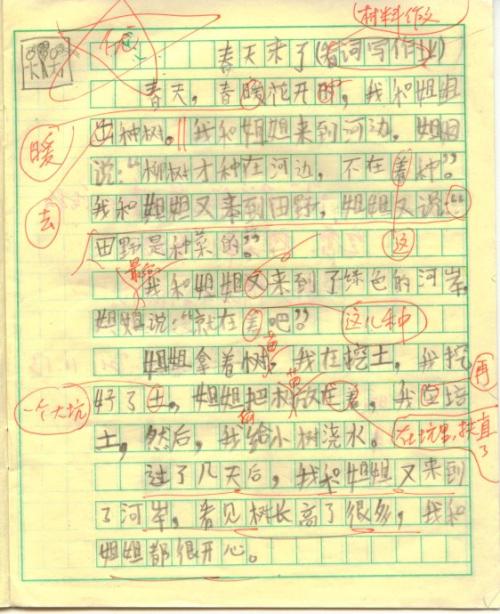 材料作文
春天来了(看词写作业)
春天,春暖花开时,我和姐姐
去种树。我和姐姐来到河边,姐姐
说:“柳树才种在河边,不在着种”。
我和姐姐又来到田野,姐姐又说:“
田野是种菜的”。
最后
我和姐姐又来到了绿色的河岸,
姐姐说:“就在着吧”。
姐姐拿着树,我在挖土,我挖
好了土,姐姐把树放在着,我
土,然后,我给小树浇水。
过了几天后,我和姐姐又来到
了河岸,看见树长高了很多,我和
姐姐都很开心。
暖
去
这
这儿种
苗
苗
一个大坑
再
在坑里,扶直了